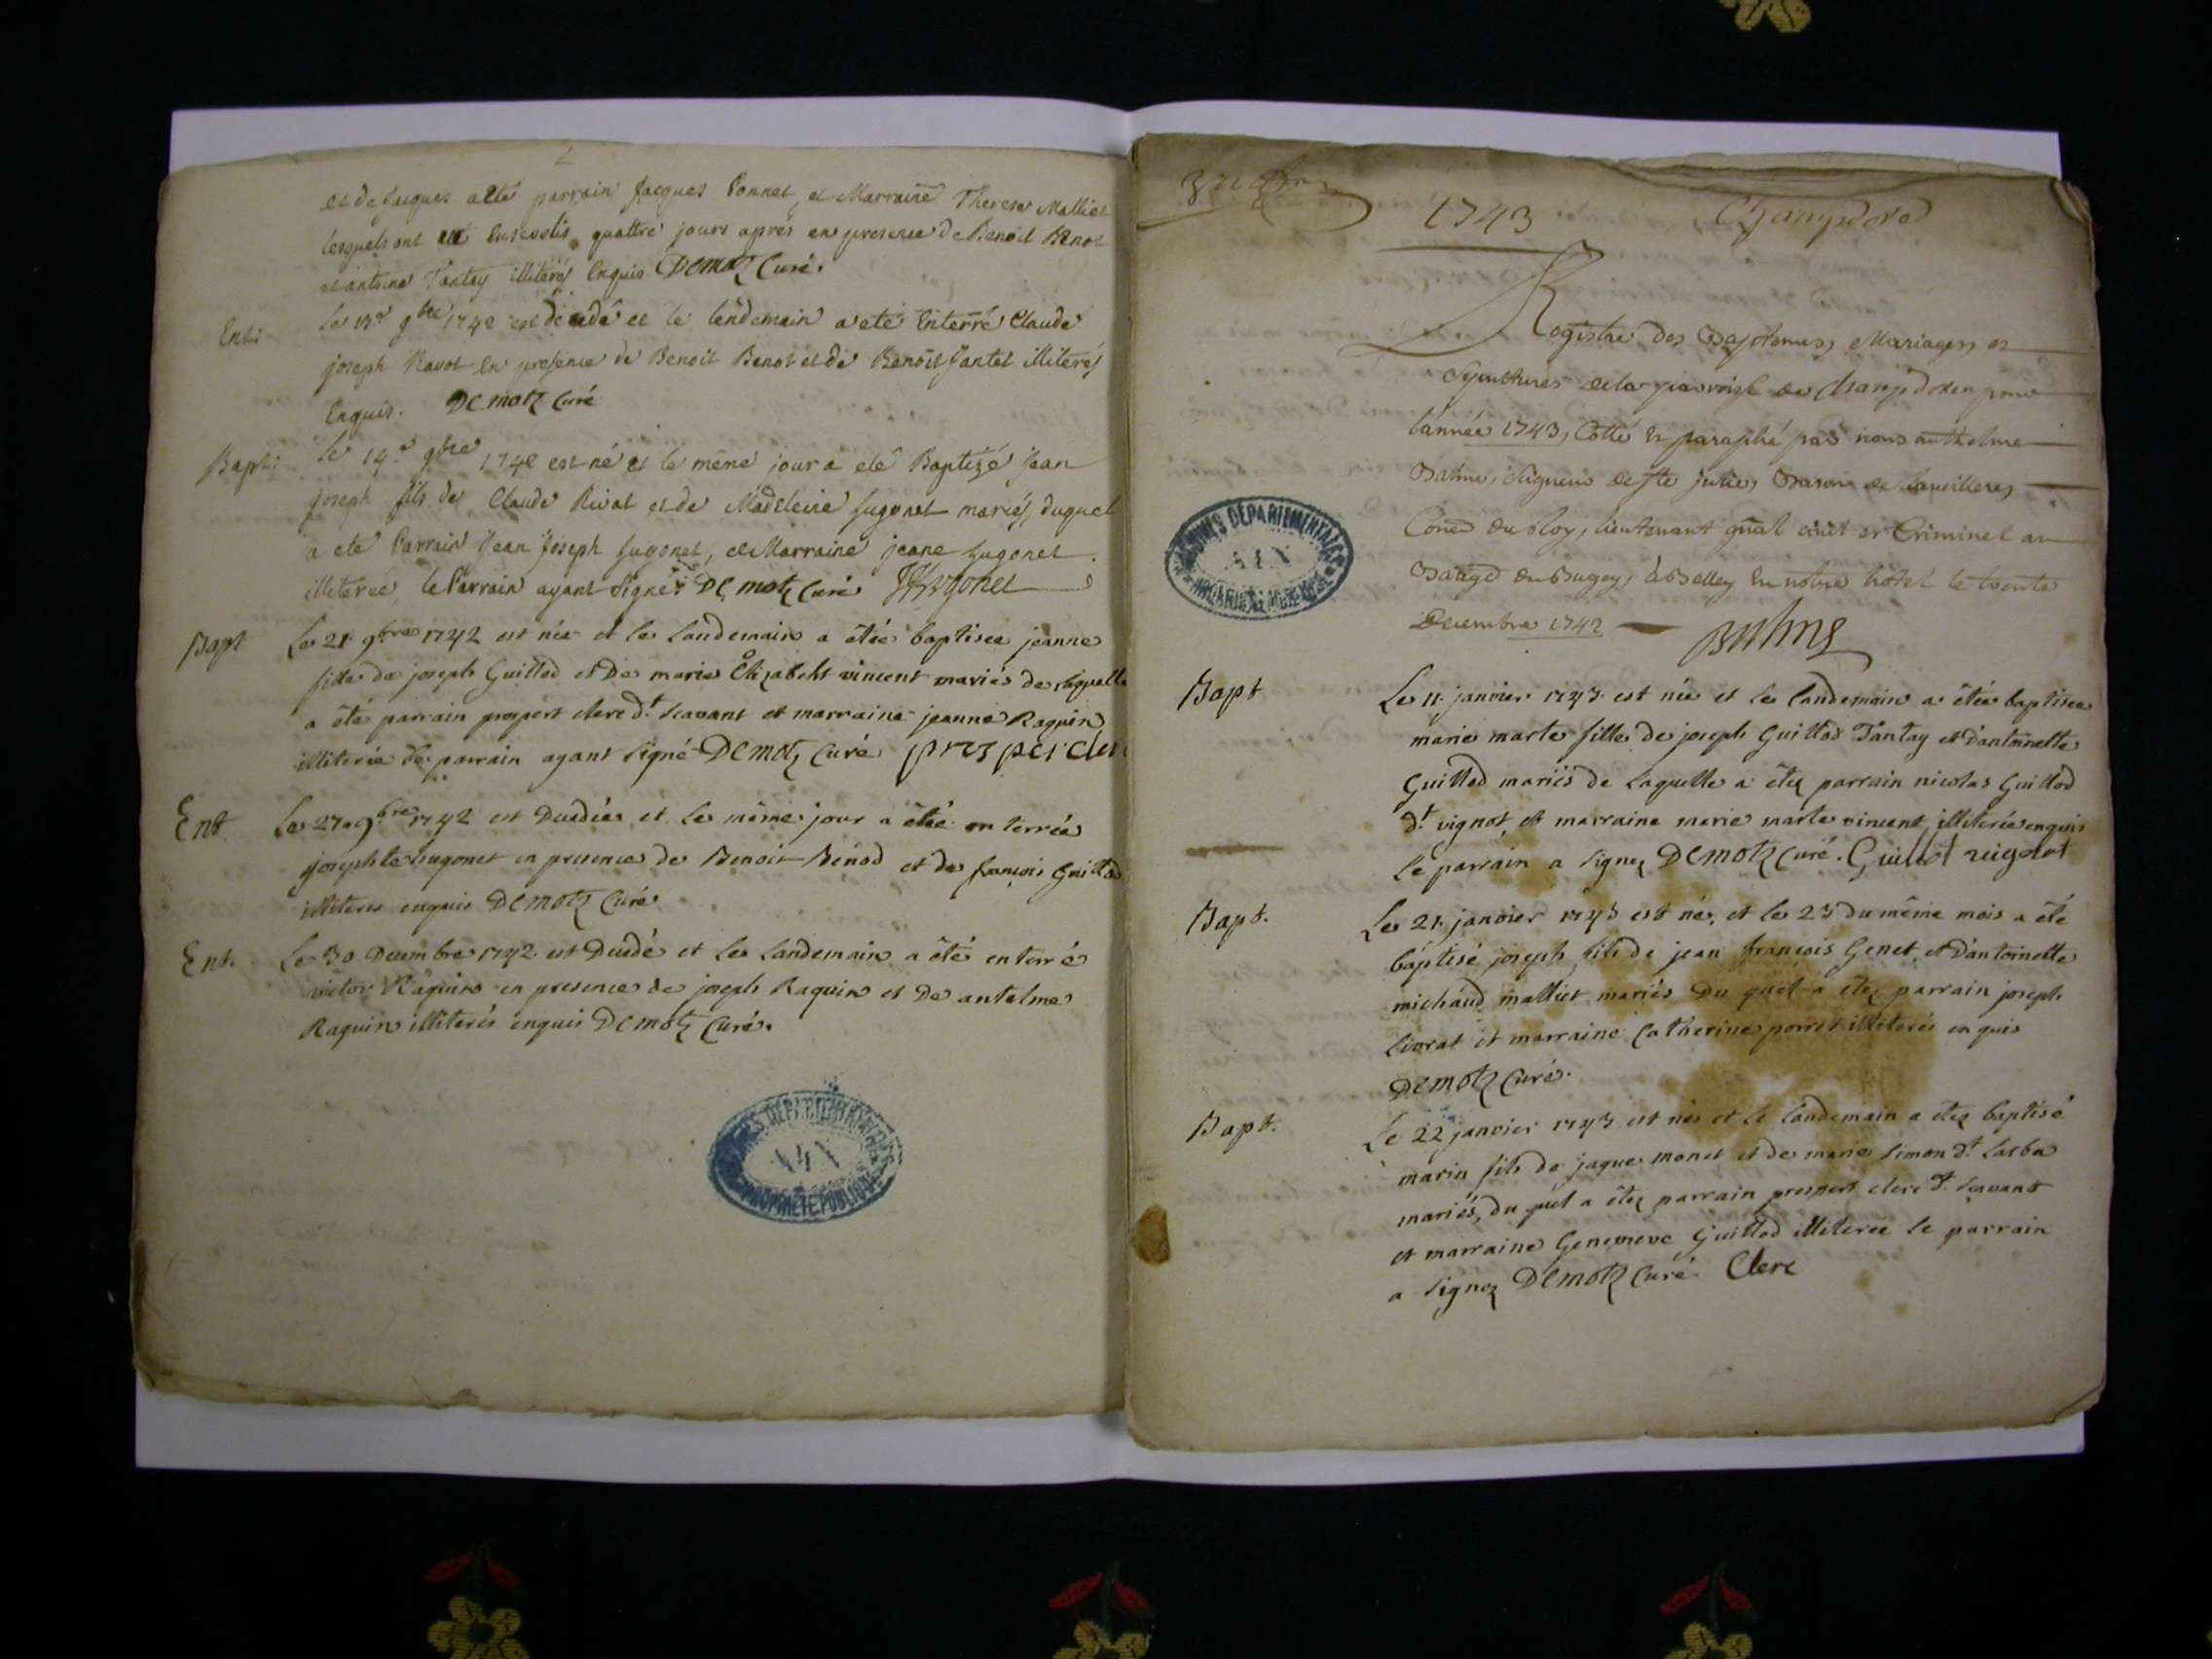 et de suques a été parrain Jacques Ponnet, et Marraine Therese Malliet
lesquels ont été ensevelis quattre jours aprés en presence de Benoit Benot
et antoine Tantay illiterés Enquis DEmotz Curé.
Ent:
Le 13e 9bre 1742 est décedé et le lendemain a eté Enterré Claude
joseph Ravot En presence de Benoit Benot et de Benoit Jantet illiterés
Enquis. DEmotz Curé
Bapt:
le 14e 9bre 1742 est né et le même jour a eté Baptizé Jean
joseph fils de Claude Rivat et de Madeleine hugonet mariés, duquel
a eté Parrain Jean Joseph hugonet, et Marraine jeane hugonet
illiteree, le Parrain ayant signé DEmotz Curé JJhugonet
Bapt
Le 21. 9bre 1742 est née et le landemain a étée baptisee jeanne
fille de joseph Guillod et De marie Elizabeht vincent mariés de laquelle
a été parrain prospert clerc dt. scavant et marraine jeanne Raquin
illiterée le parrain ayant signé DEmotz Curé prosper cler
Ent
Le 27. 9bre 1742 est Dusdée et le même jour a étée enterrée
josephte hugonet en presence de Benoit Benod et de françois Guillod
illiteres enquis DEmotz Curé
Ent.
Le 30 Decembre 1742 est Dusdé et le landemain a été enterré
victor Raquin en presence de joseph Raquin et De antelme
Raquin illiterés enquis DEmotz Curé.
1743
Champdore
Registre des Baptemes, Mariages, et
Sepultures de la parroisse de Champdoren pour
l'année 1743, Cotté et paraphé par nous anthelme
Balme, Seigneur de Ste julie, Baron de laveilleres
Coner du Roy, lieutenant gnal civil et Criminel au
Balage du Bugey, à Belley En notre hotel le trente
Decembre 1742 Balme
ARCHIVES DEPARTEMENTALES
AIN
Bapt
Le 11. janvier 1743. est née et le landemain a étée baptisee
marie marte fille de joseph Guillod Tantay et d'antoinette
Guillod mariés de laquelle a étez parrain nicolas Guillod
dt. vignot, et marraine marie marte vincent, illiterée enquis
le parrain a signez DEmotz Curé. Guillot vignot
Bapt.
Le 21. janvier 1743 est né, et le 23 du même mois a été
baptisé joseph fils de jean françois Genet, et d'antoinette
michaud malliet mariés Du quel a étez parrain joseph
livrat et marraine Catherine porret illiterée enquis
DEmotz Curé.
Bapt.
Le 22 janvier 1743 est nés et le landemain a étez baptisé
marin fils de jaque monet et de marie simon dt. Lasba
mariés, du quel a étez parrain prospert clerc dt. scavant
et marraine Genevieve Guillod illiteree le parrain
a signez DEmotz Curé Clerc
ARCHIVES DEPARTEMENTALES
AIN
PROPRIETE PUBLIQUE